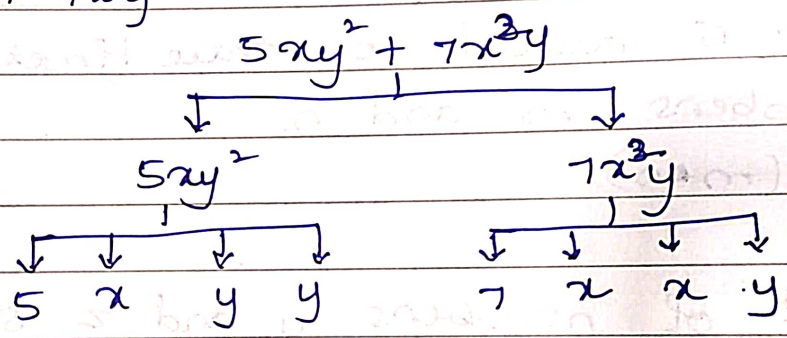 5xy² + 7x³y
5xy² 7x³y
5 x y y 7 x x y